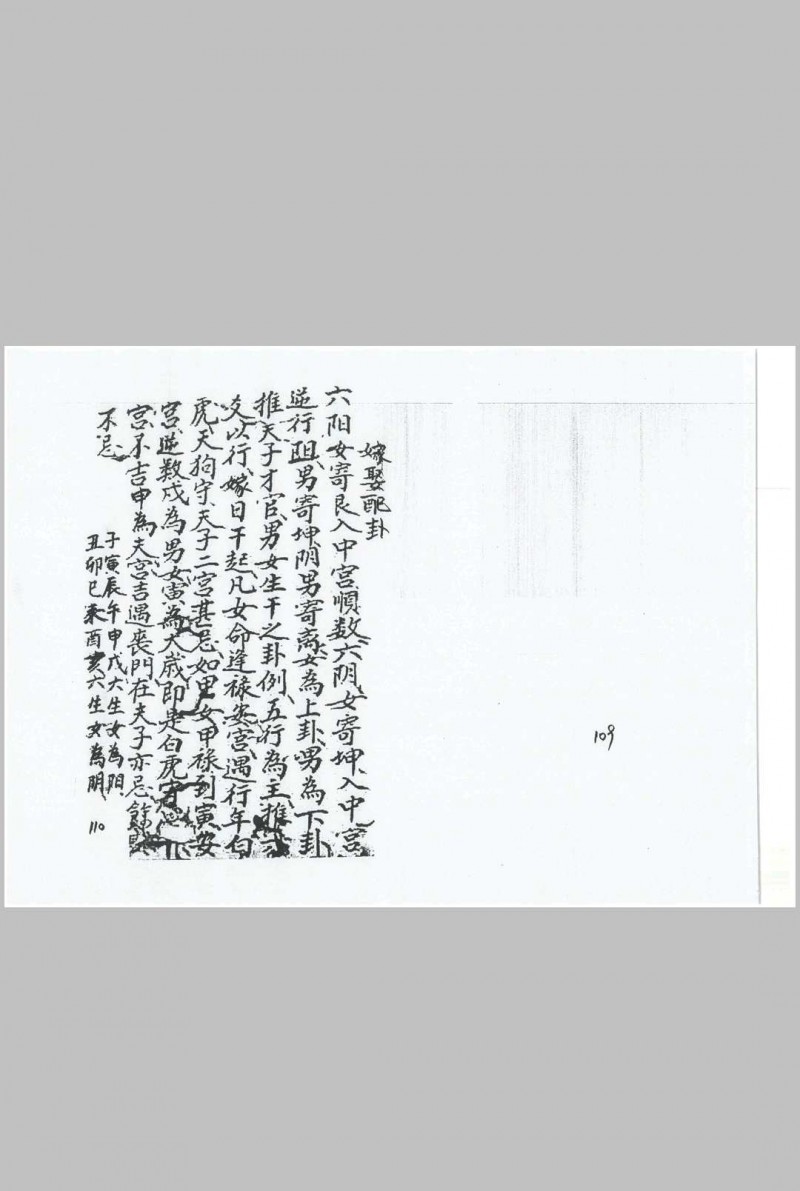 嫁娶配卦
六阳女寄艮入中宫順数六阴女寄坤入中宫
逆行阳男寄坤阴男寄离女為上卦男為下卦
推天子才官男女生干之卦例五行為主推
爻以行嫁日干起凡女命逢禄安宫遇行年白
虎天狗守天子二宫甚忌如里女甲禄到寅安
宫逆数戌為男女寅為大歳即是白虎守
宫不吉申為夫宫吉遇喪門在夫子亦忌餘
不忌
子寅辰午申戊大生女為阳
丑卯巳未酉亥六生女為阴
110
109